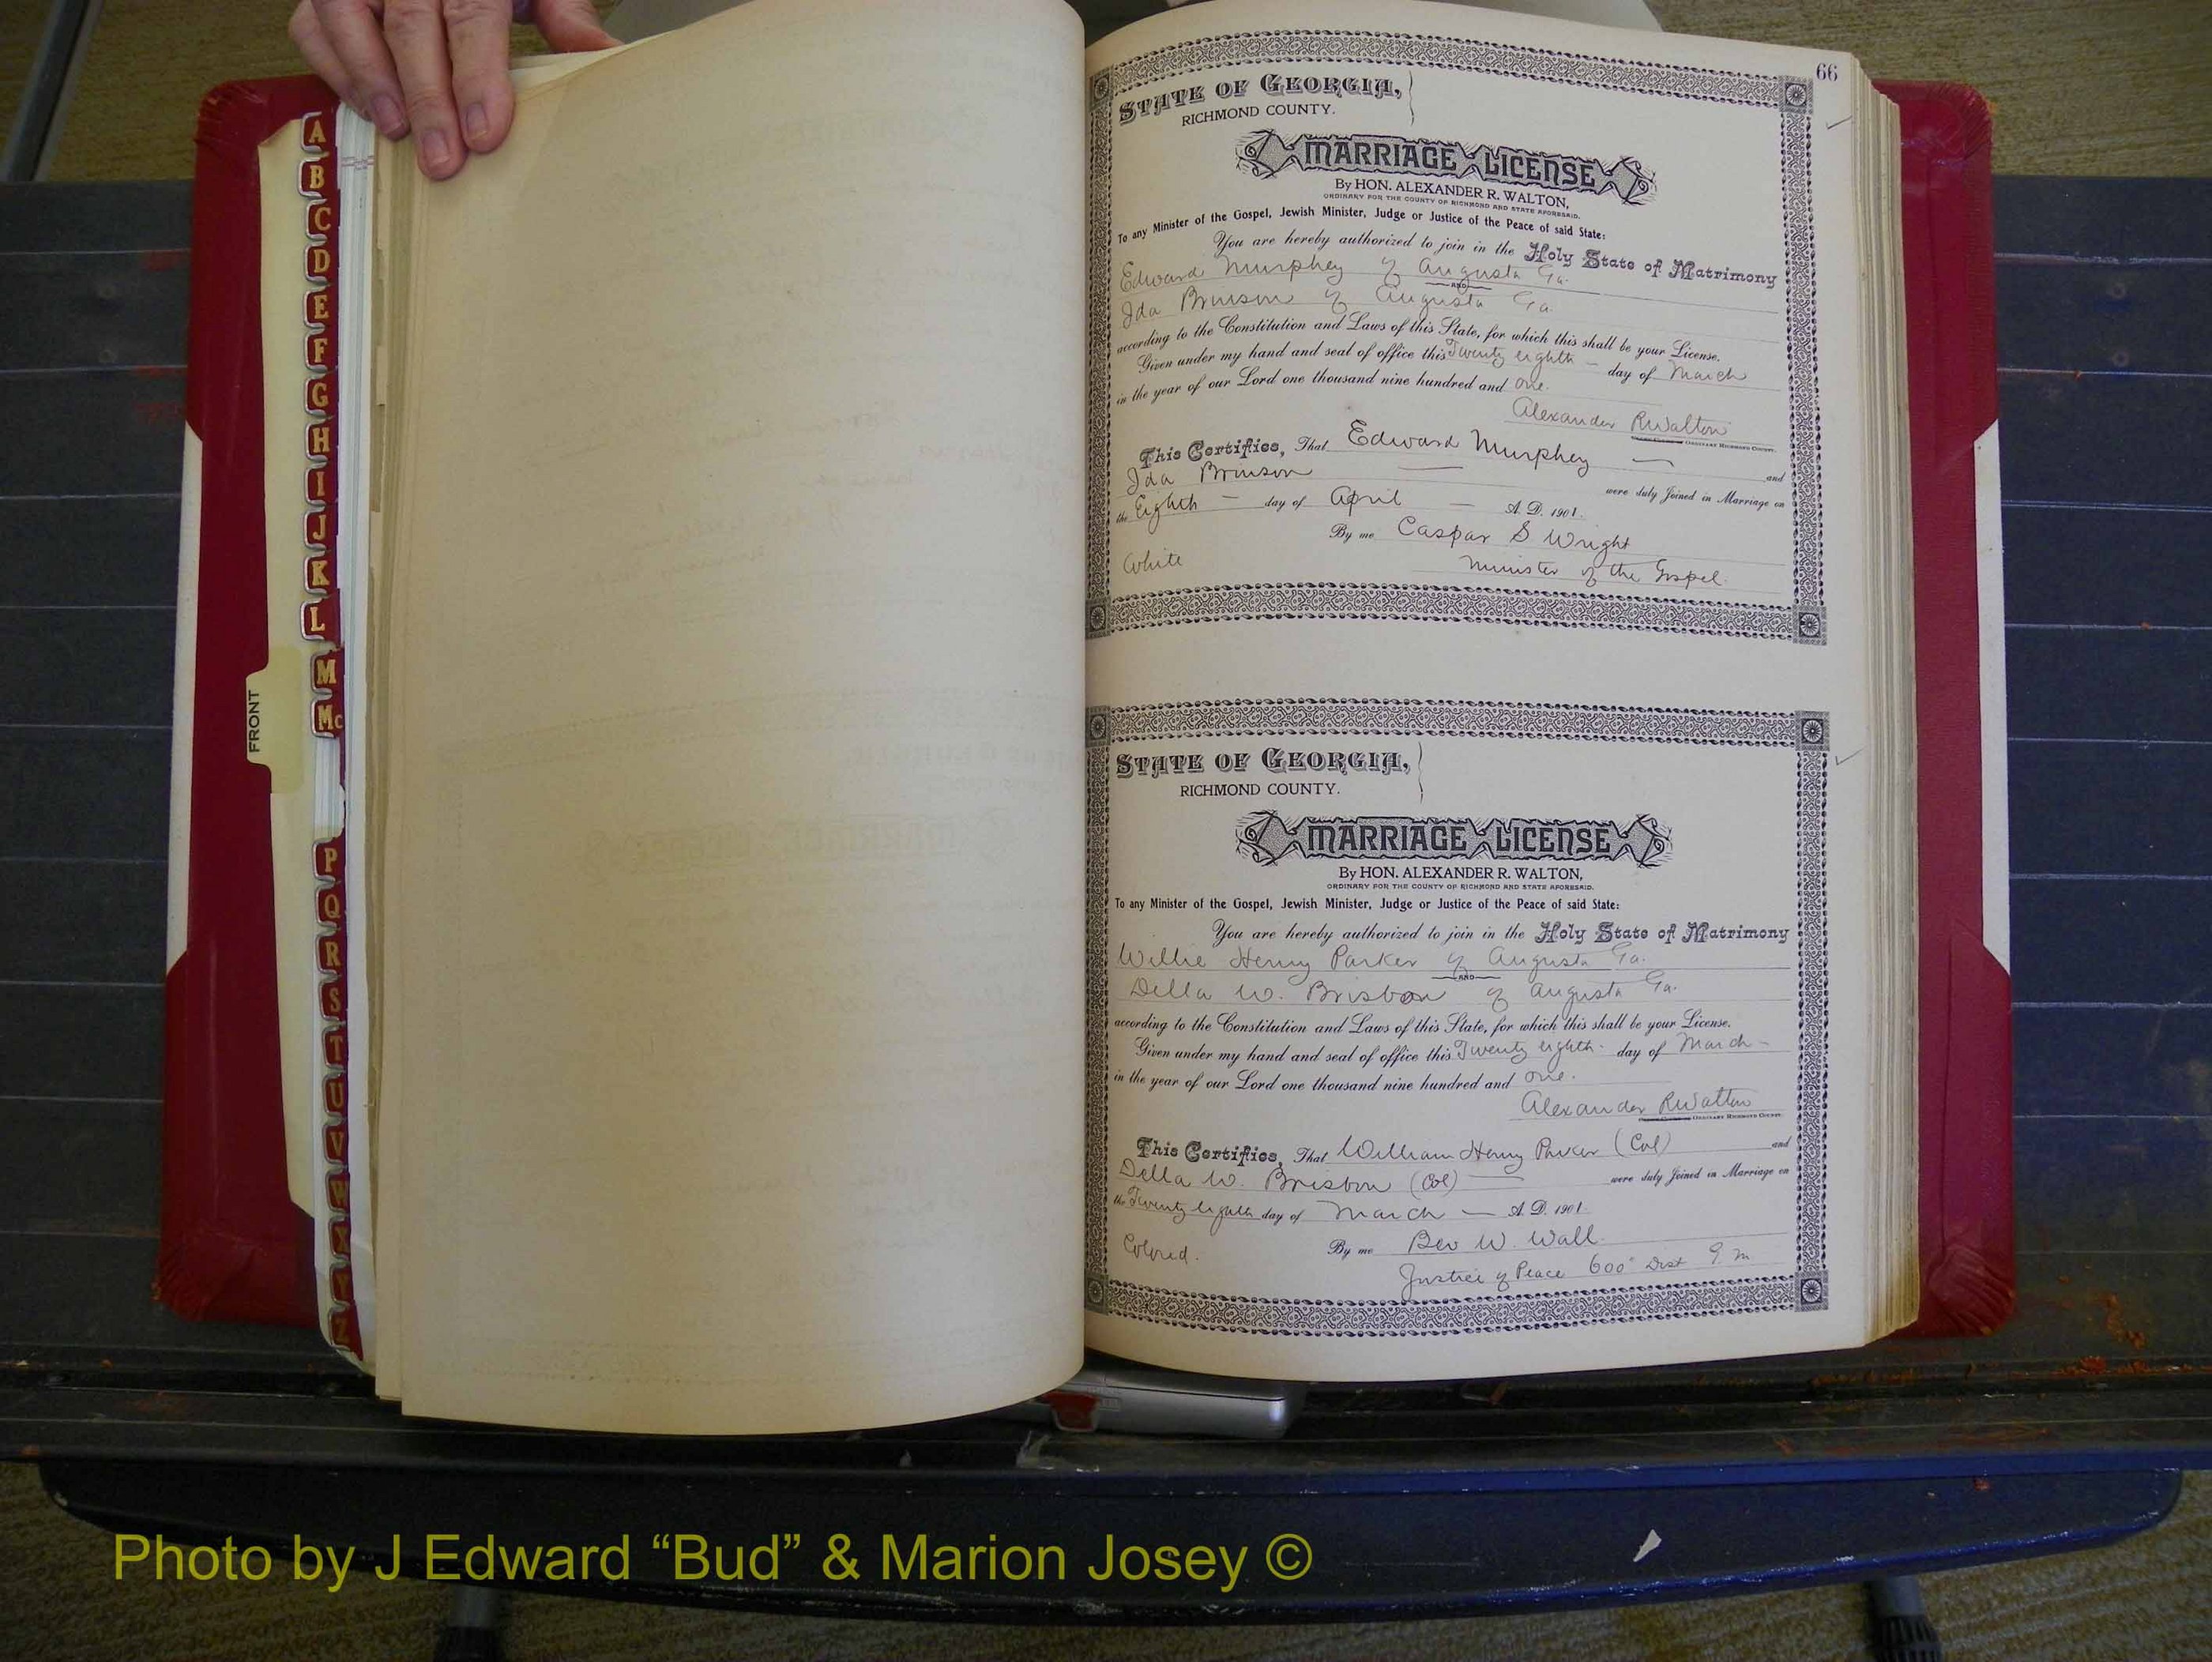 66
STATE OF GEORGIA,
RICHMOND COUNTY.
MARRIAGE LICENSE
By HON. ALEXANDER R. WALTON,
ORDINARY FOR THE COUNTY OF RICHMOND AND STATE AFORESAID.
To any Minister of the Gospel, Jewish Minister, Judge or Justice of the Peace of said State:
You are hereby authorized to join in the Holy State of Matrimony
Edward Murphey of Augusta Ga.
AND
Ida Brinson of Augusta Ga.
according to the Constitution and Laws of this State, for which this shall be your License.
Given under my hand and seal of office this Twenty eighth — day of March
in the year of our Lord one thousand nine hundred and one.
Alexander R Walton
ORDINARY RICHMOND COUNTY.
This Certifies, That Edward Murphey — and
Ida Brinson — were duly Joined in Marriage on
the Eighth — day of April — A. D. 1901.
By me Caspar S Wright
White Minister of the Gospel.
STATE OF GEORGIA,
RICHMOND COUNTY.
MARRIAGE LICENSE
By HON. ALEXANDER R. WALTON,
ORDINARY FOR THE COUNTY OF RICHMOND AND STATE AFORESAID.
To any Minister of the Gospel, Jewish Minister, Judge or Justice of the Peace of said State:
You are hereby authorized to join in the Holy State of Matrimony
Willie Henry Parker of Augusta Ga.
AND
Della W. Brisbon of Augusta Ga.
according to the Constitution and Laws of this State, for which this shall be your License.
Given under my hand and seal of office this Twenty eighth - day of March -
in the year of our Lord one thousand nine hundred and one.
Alexander R Walton
ORDINARY RICHMOND COUNTY.
This Certifies, That William Henry Parker (Col) and
Della W. Brisbon (Col) — were duly Joined in Marriage on
the Twenty eighth day of March — A. D. 1901.
Colored. By me Bev W. Wall
Justice of Peace 600" Dist G M
A
B
C
D
E
F
G
H
I
J
K
L
M
Mc
P
Q
R
S
T
U
V
W
X
Y
Z
FRONT
Photo by J Edward “Bud” & Marion Josey ©